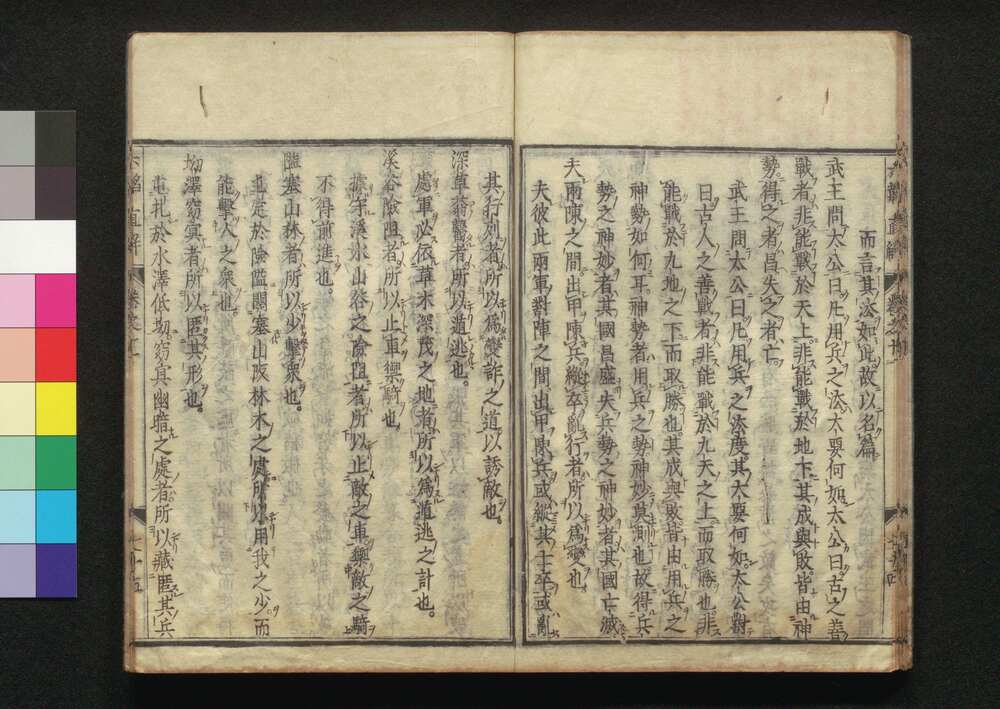 而言其法如此故以名篇
武王問太公曰凡用兵之法大要何如太公曰古之善
戰者非能戰於天上非能戰於地下其成與敗皆由神
勢得之者昌失之者亡
武王問太公曰凡用兵之法度其大要何如太公對
曰古人之善戰者非能戰於九天之上而取勝也非
能戰於九地之下而取勝也其成與敗皆由用兵之
神勢如何耳神勢者用兵之勢神妙莫測也故得兵
勢之神妙者其國昌盛失兵勢之神妙者其國亡滅
夫兩陳之間出甲陳兵縱卒亂行者所以為變也
夫彼此兩軍對陣之間出甲陳兵或縱其士卒或亂
其行列者所以爲變詐之道以誘敵也
深草蓊翳者所以遁逃也
處軍必依草木深茂之地者所以爲遁逃之計也
溪谷險阻者所以止車禦騎也
據守溪水山谷之險阻者所以止敵之車禦敵之騎
不得前進也
隘塞山林者所以少擊衆也
屯定於險隘關塞山阪林木之處所以用我之少而
能擊人之衆也
坳澤窈冥者所以匿其形也
屯札於水澤低坳窈冥幽暗之處者所以藏匿其兵
六韜直解